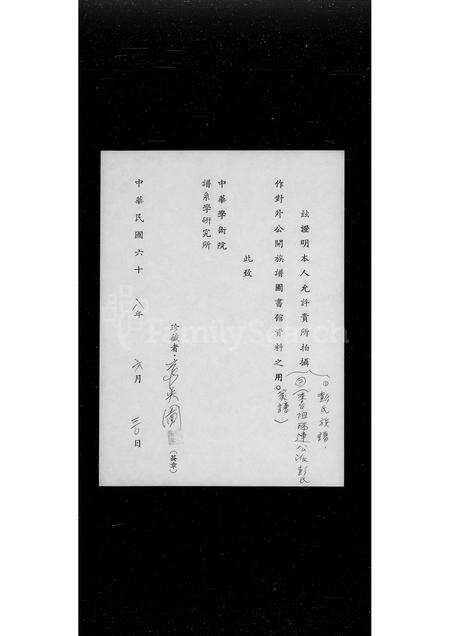 茲證明本人允許貴所拍攝
①彭氏族譜
②(來台祖瑞連公派彭氏
家譜)
作對外公開族譜圖書館資料之用。
此致
中華學術院
譜系學研究所
珍藏者: (簽章)
中華民國六十八年六月三十日
FamilySearch